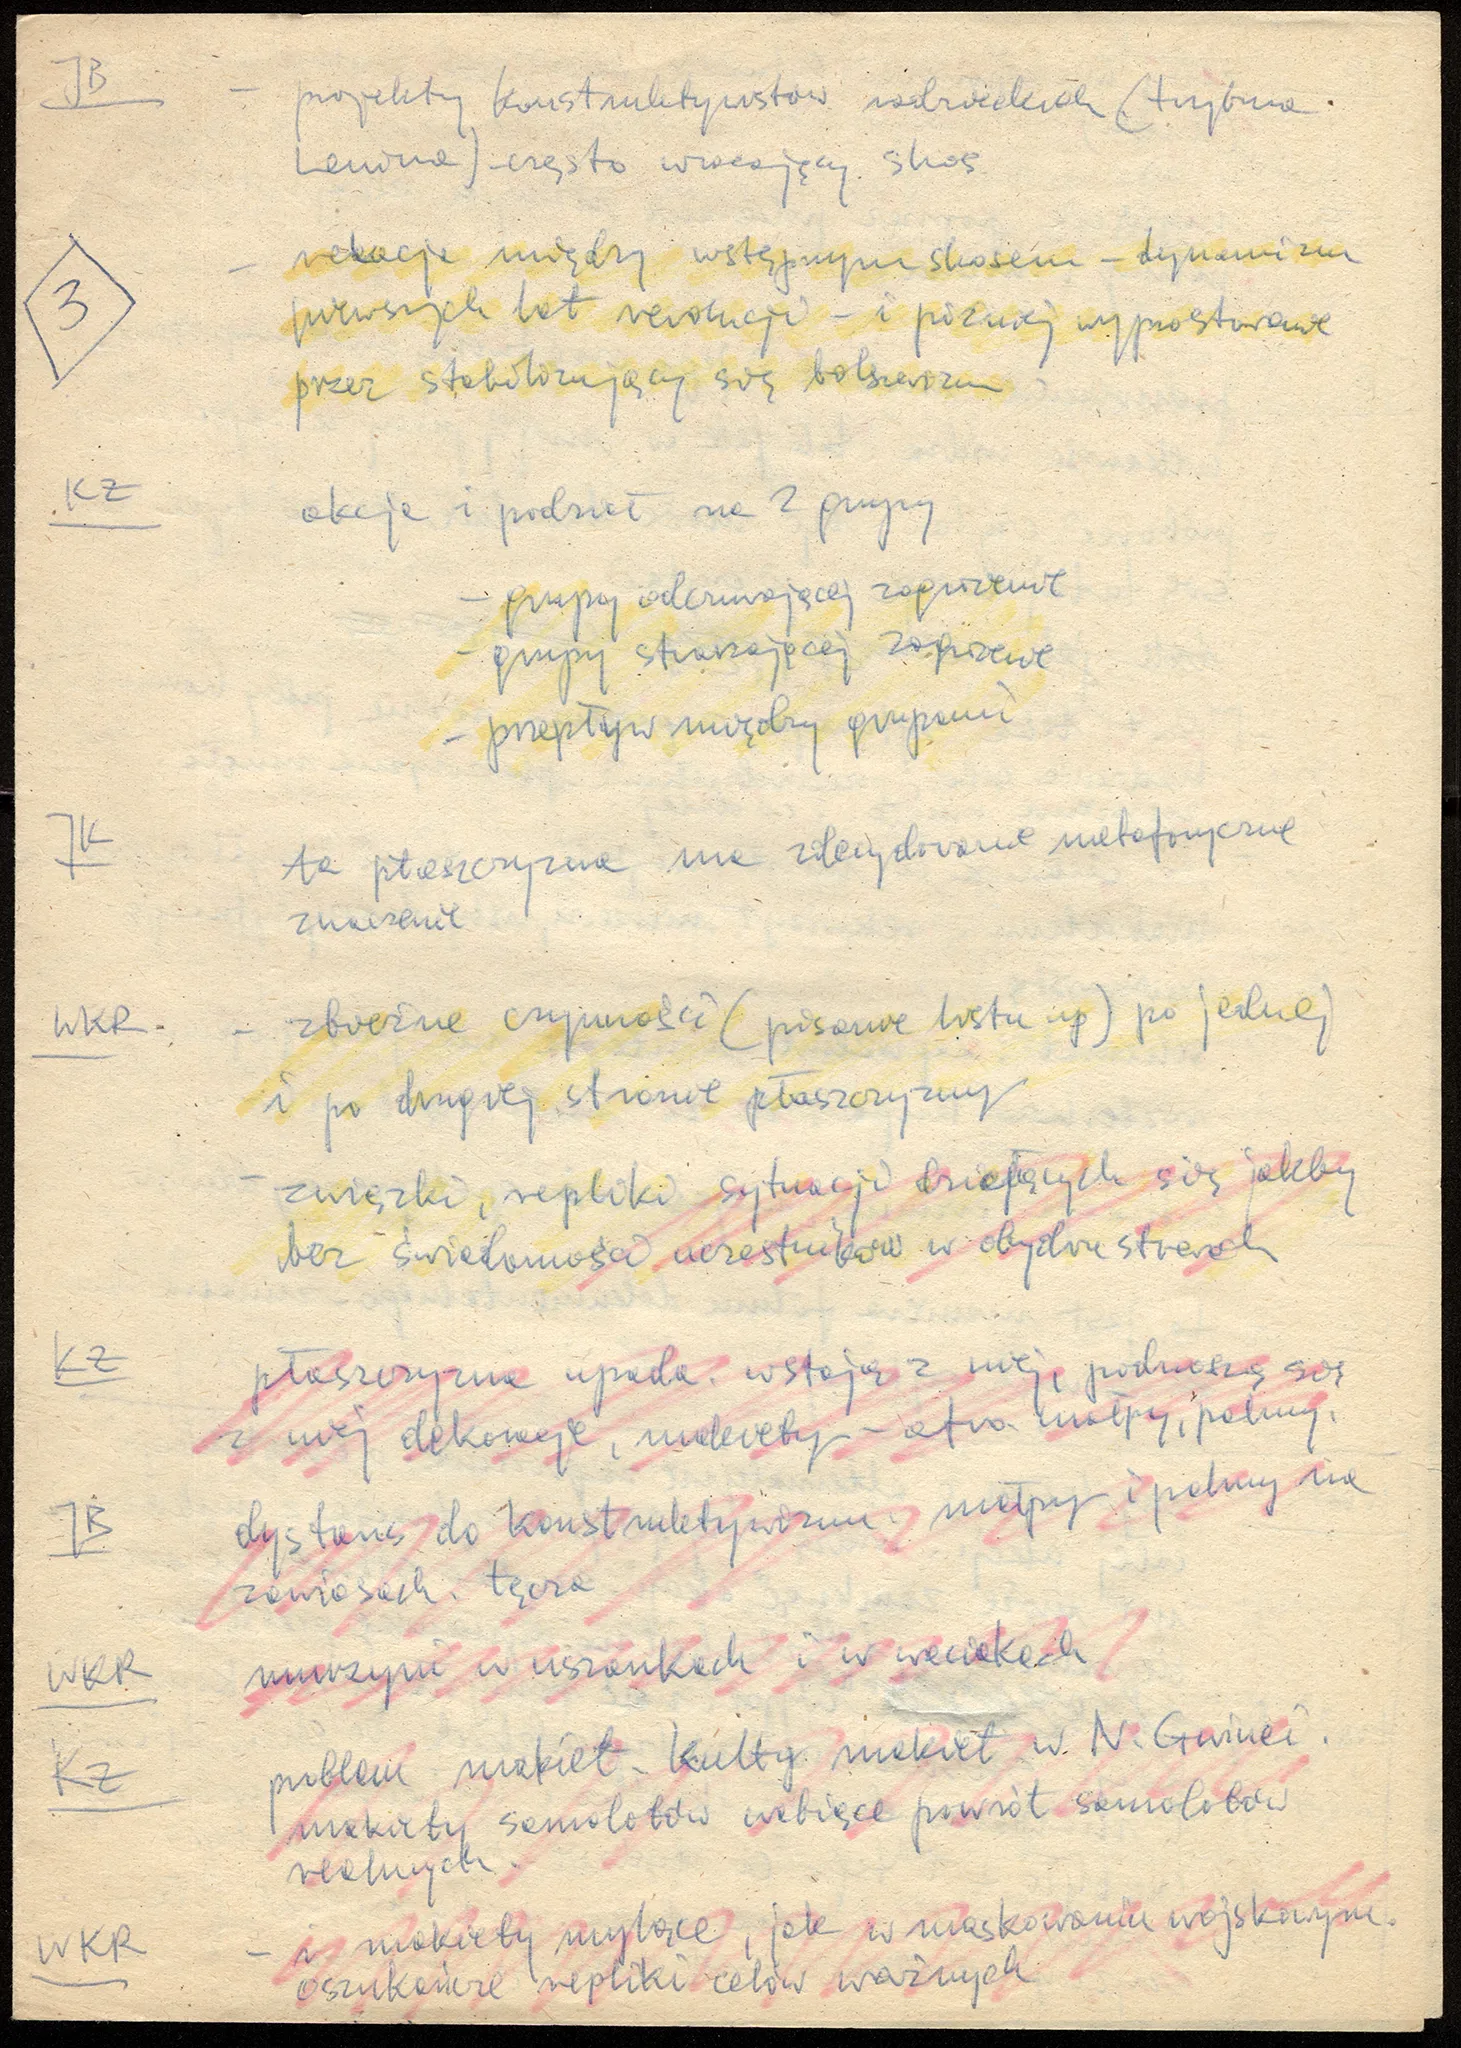 JB
- projekty konstruktywistów radzieckich (trybuna
Lenina) - często wracający skos
3
- relacje między wstępnym skosem - dynamizm
pierwszych lat rewolucji - i później wyprostowane
przez stabilizujący się bolszewizm
KZ
akcje i podział na 2 grupy
- grupy odczuwającej zagrożenie
- grupy stwarzającej zagrożenie
- przepływ między grupami
JK
ta płaszczyzna ma zdecydowanie metaforyczne
znaczenie
WKR.
- zbieżne czynności (pisanie listu np) po jednej
i po drugiej stronie płaszczyzny
- związki, repliki sytuacji dziejących się jakby
bez świadomości uczestników w obydwu stronach
KZ
płaszczyzna upada. wstają z niej, podnoszą się
z niej dekoracje, makiety - małpy, palmy.
JB
dystans do konstruktywizmu. małpy i palmy na
zawiasach. tęcza
WKR
murzyni w uszankach i w waciakach
KZ
problem makiet. Kulty makiet w N. Gwinei.
makiety samolotów wabiące powrót samolotów
realnych.
WKR
- i makiety mylące, jak w maskowaniu wojskowym.
oszukańcze repliki celów ważnych